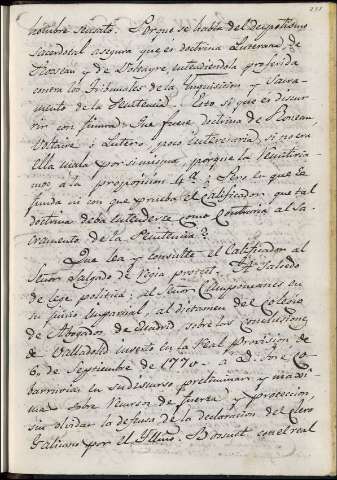 hombre sensato. Porque se habla del despotismo
sacerdotal asegura que es doctrina Luterana, de
Rosseau y de Volteyre, entendiendola proferida
contra los tribunales de la Ynquisicion y Sacra-
mento de la Penitencia. Esto si que es discur-
rir con finura. Que fuese doctrina de Roseau,
Voltaire ò Lutero, poco interesaria, si no era
ella mala por si misma, porque la
mos à la proposicion 4ª; Pero en que se
funda ni con que prueba el Calificador, que tal
doctrina deba entenderse como contraria al Sa-
cramento de la Penitencia?
Que lea y consulte el Calificador al
Señor Salgado de regia protect. A Salcedo
de lege politica; al Señor Campomanes en
su juicio imparcial, al dictamen del Colegio
de Abogados de Madrid, sobre las conclusiones
de Valladolid inserto en la Real provision, de
6 de Septiembre de 1770. à D. Jose Co-
barrubias en su discurso preliminar y maxi
mas sobre recursos de fuerza y proteccion,
sin olvidar la defensa de la declaracion del Clero
Galicano por el Yllmo. Bossuet con el real